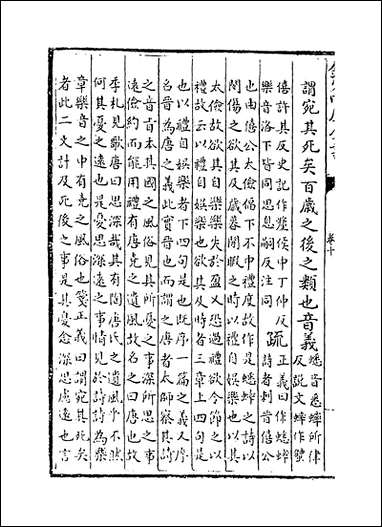 謂宛其死矣百歲之後之類也音義
蟋音悉蟀所律
反說文蟀作
僖許其反史記作釐侯中丁仲反
樂音洛下皆同思息嗣反注同
疏
正義曰作蟋蟀
詩者刺晉僖公
也由僖公太儉偪下不中禮度故作是蟋蟀之詩以
閔傷之欲其及歲暮閒暇之時以禮自娛樂也以其
太儉故欲其自樂樂失於盈又恐過禮欲令節之以
禮故云以禮自娛樂也欲其及時者三章上四句是
也以禮自娛樂者下四句是也既序一篇之義又序
名晉為唐之義此實晉也而謂之唐者太師察其詩
之音旨本其國之風俗見其所憂之事深所思之事
遠儉約而能用禮有唐堯之遺風故名之曰唐也故
季札見歌唐曰思深哉其有陶唐氏之遺風乎不然
何其憂之遠也是憂思深遠之事情見於詩詩為樂
章樂音之中有堯之風俗也箋正義曰謂宛其死矣
者此二文計及死後之事是其憂念深思慮遠也言
卷十